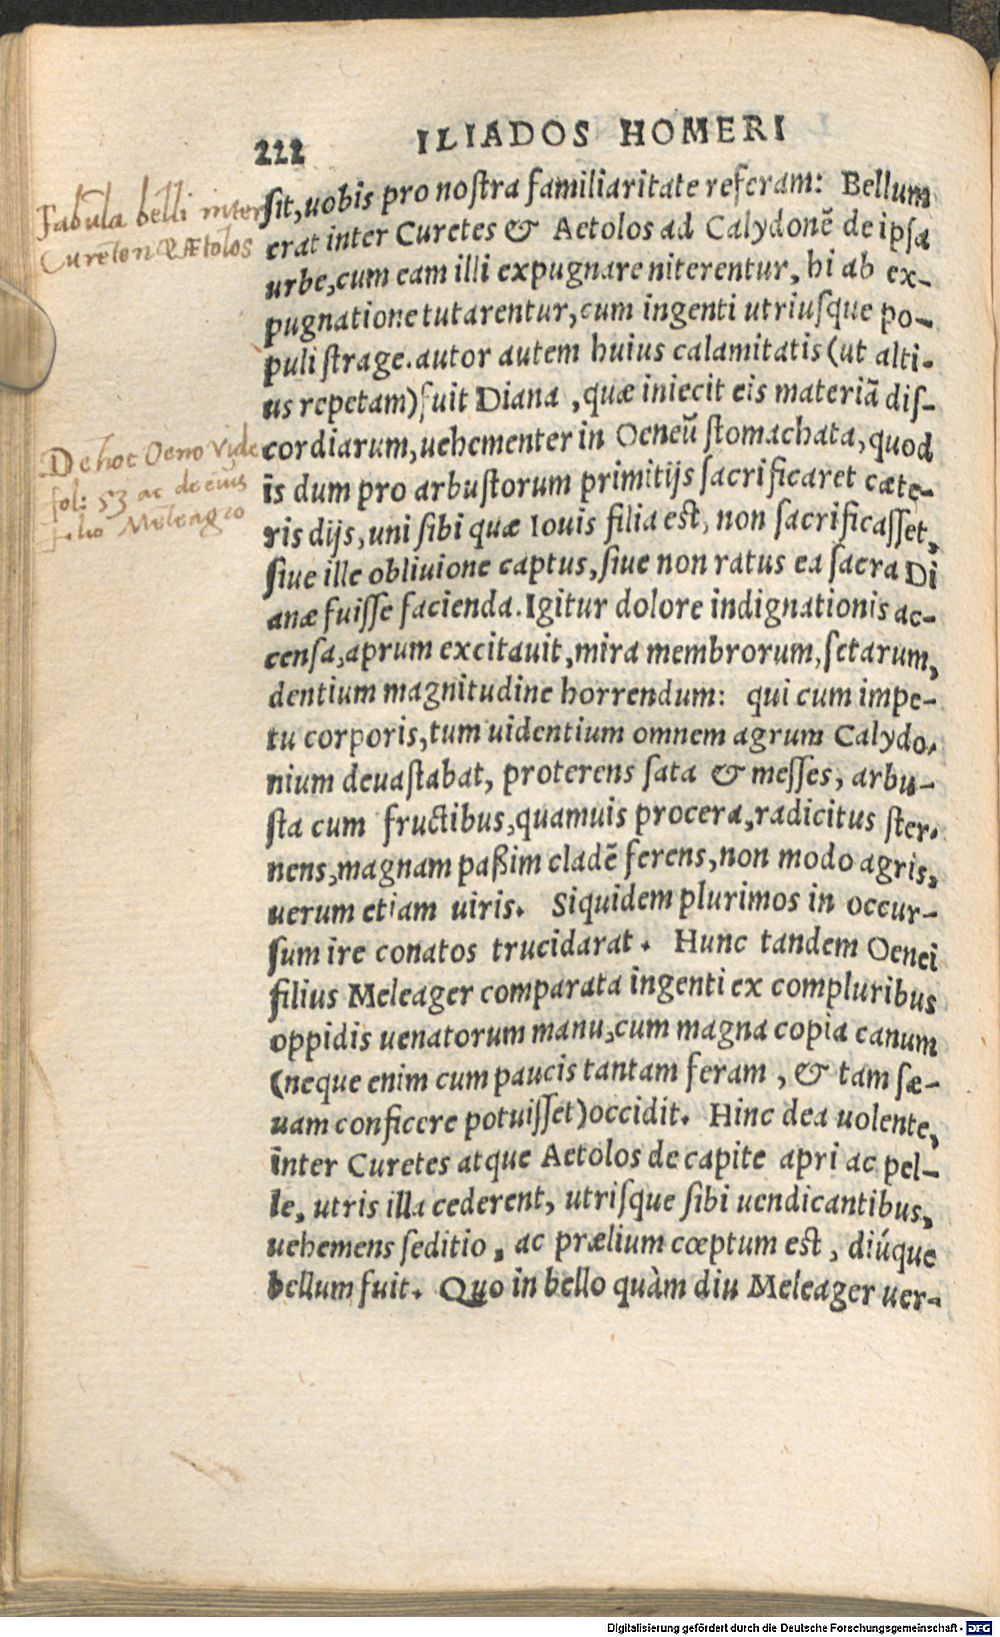 222 ILIADOS HOMERI
Fabula belli inter
Cureton & Ætolos
sit, uobis pro nostra familiaritate referam: Bellum
erat inter Curetes & Aetolos ad Calydonē de ipsa
urbe, cum eam illi expugnare niterentur, hi ab ex-
pugnatione tutarentur, cum ingenti utriusque po-
puli strage. autor autem huius calamitatis (ut alti-
us repetam) fuit Diana, quæ iniecit eis materiā dis-
cordiarum, uehementer in Oeneū stomachata, quod
De hoc Oeno vide
fol: 53 ac de eius
filio Meleagro
is dum pro arbustorum primitijs sacrificaret cæte-
ris dijs, uni sibi quæ Iouis filia est, non sacrificasset,
siue ille obliuione captus, siue non ratus ea sacra Di
anæ fuisse facienda. Igitur dolore indignationis ac-
censa, aprum excitauit, mira membrorum, setarum,
dentium magnitudine horrendum: qui cum impe-
tu corporis, tum uidentium omnem agrum Calydo-
nium deuastabat, proterens sata & messes, arbu-
sta cum fructibus, quamuis procera, radicitus ster-
nens, magnam paßim cladē ferens, non modo agris,
uerum etiam uiris. Siquidem plurimos in occur-
sum ire conatos trucidarat. Hunc tandem Oenei
filius Meleager comparata ingenti ex compluribus
oppidis uenatorum manu, cum magna copia canum
(neque enim cum paucis tantam feram, & tam sæ-
uam conficere potuisset) occidit. Hinc dea uolente,
inter Curetes atque Aetolos de capite apri ac pel-
le, utris illa cederent, utrisque sibi uendicantibus,
uehemens seditio, ac prælium cœptum est, diúque
bellum fuit. Quo in bello quàm diu Meleager uer-
Digitalisierung gefördert durch die Deutsche Forschungsgemeinschaft - DFG